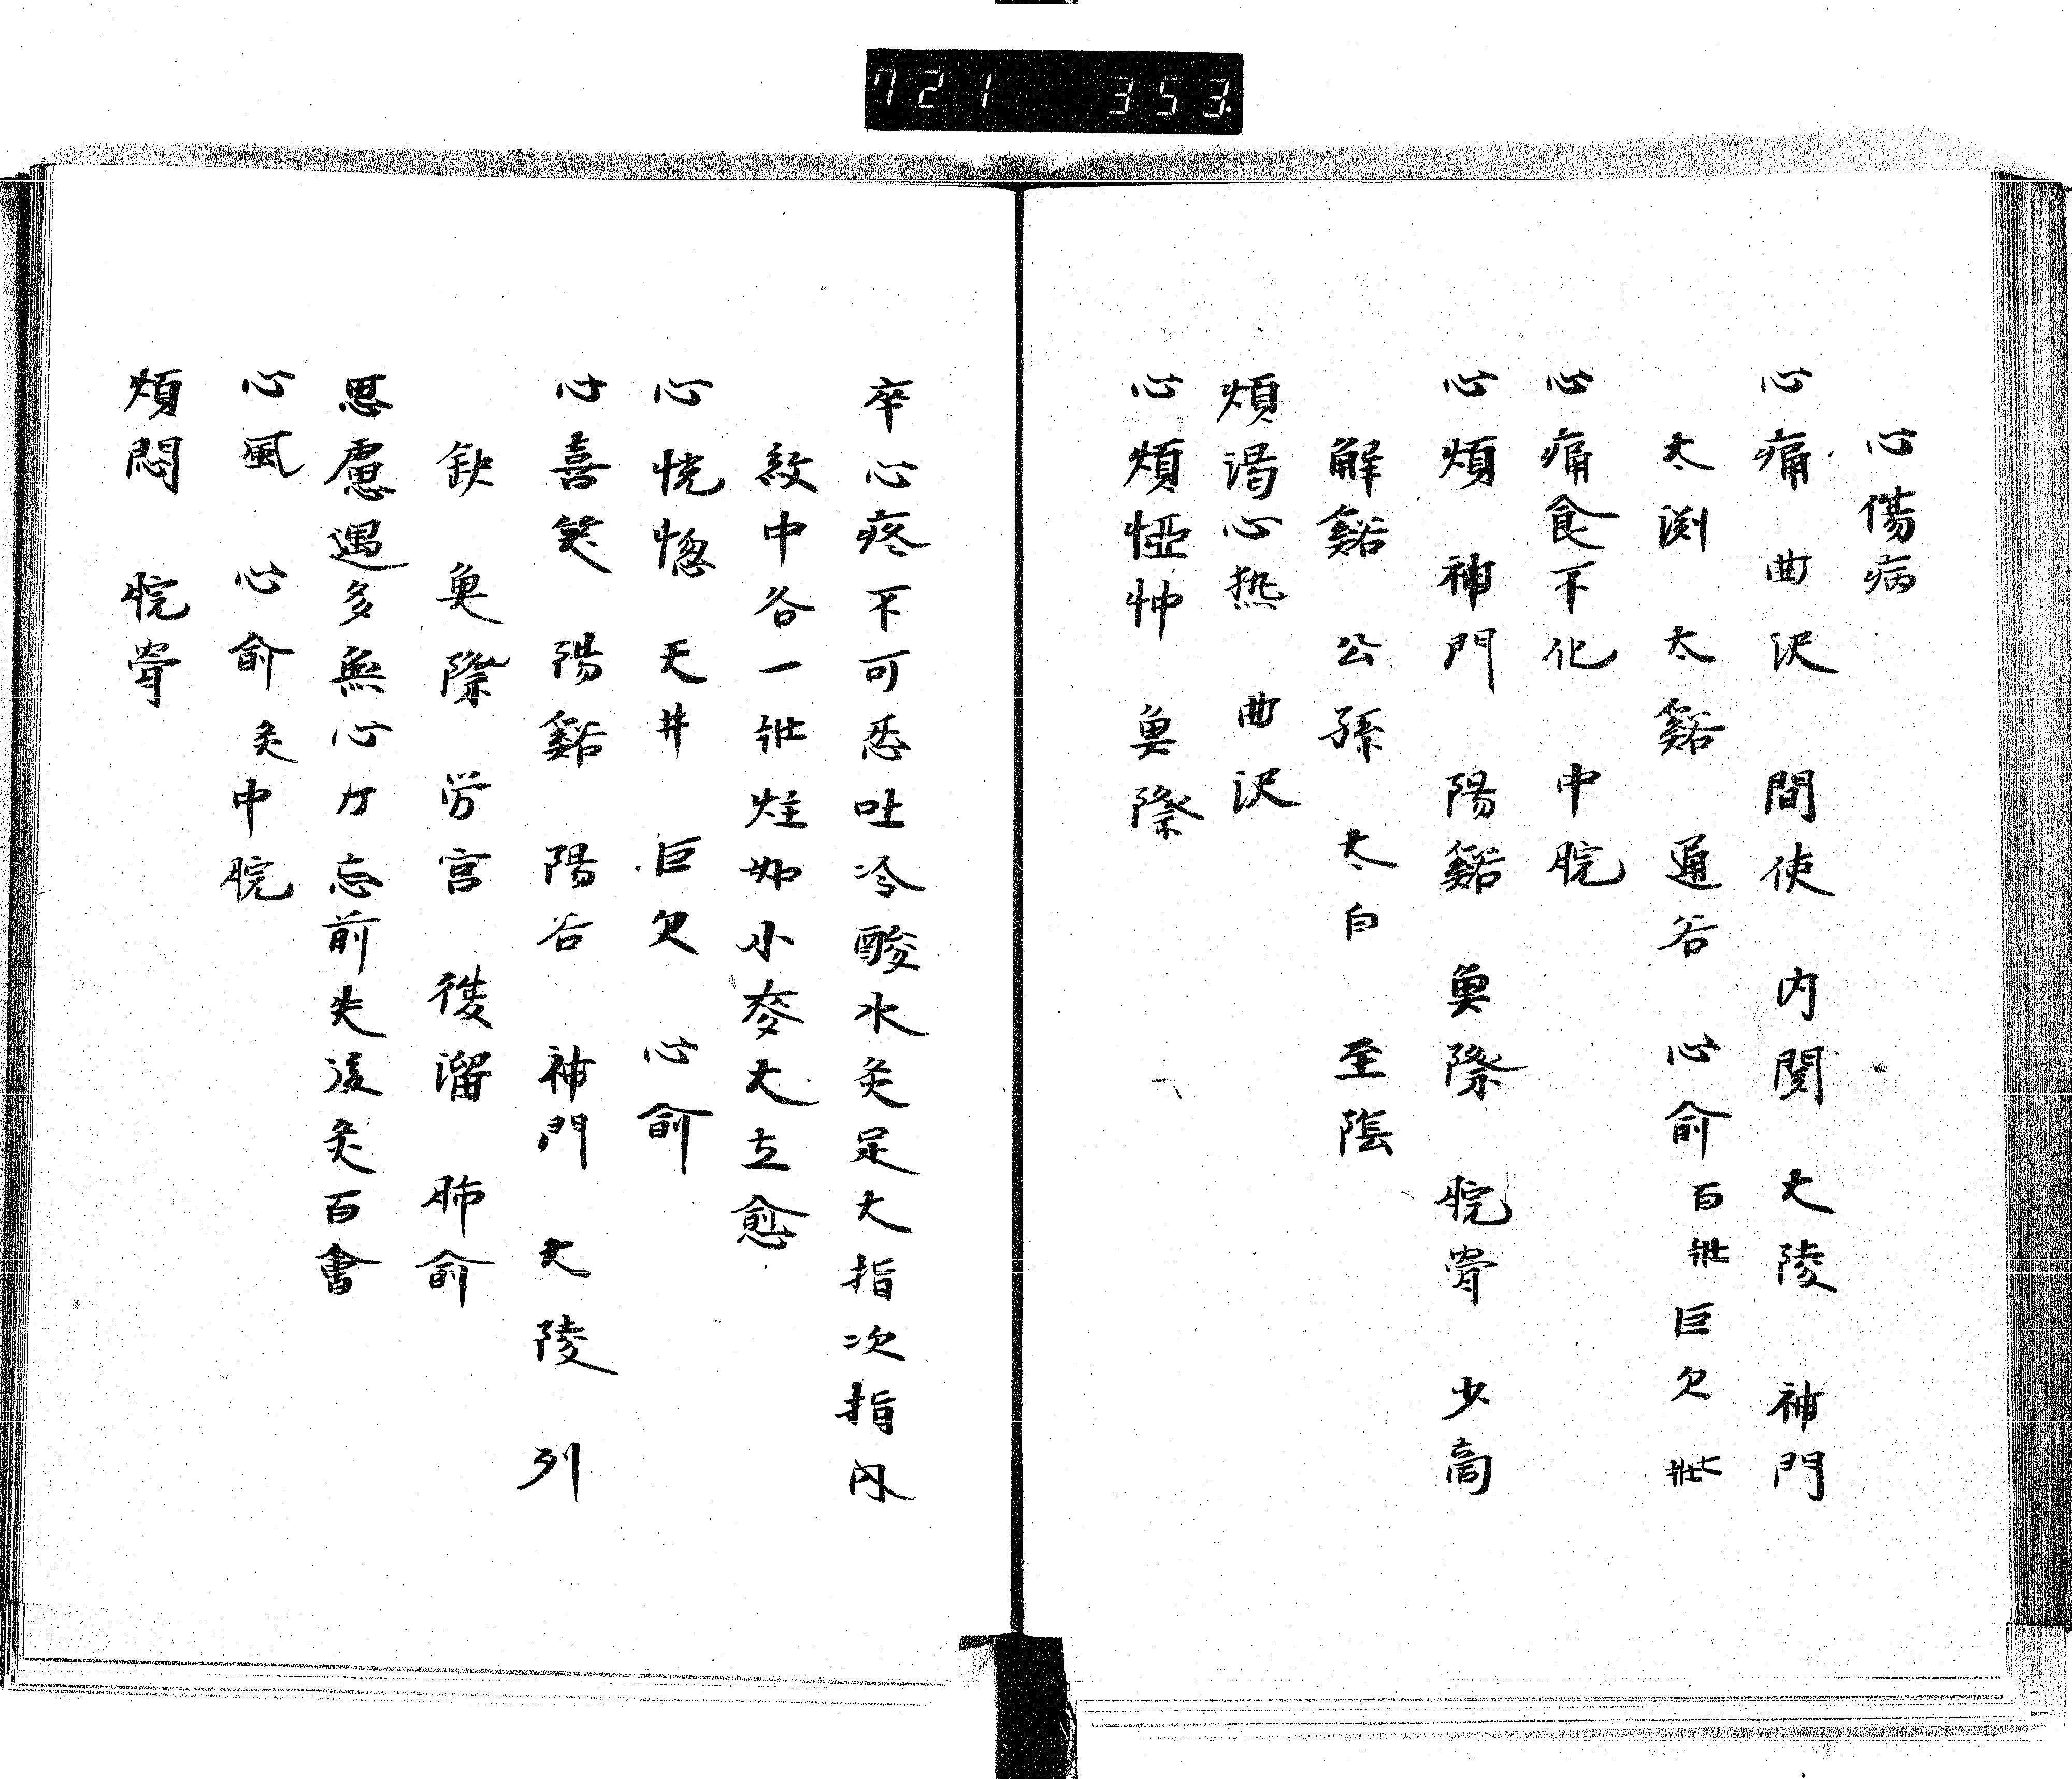 721 353
心傷病
心痛 曲沢 間使 内関 大陵 神門
太渕 太谿 通谷 心俞百壯 巨欠七壯
心痛食不化 中脘
心煩 神門 陽谿 魚際 腕骨 少商
解谿 公孫 太白 至陰
煩渇心热 曲沢
心煩怔忡 魚際
卒心疼不可忍吐冷酸水灸足大指次指内
紋中各一壯炷如小麥大立愈
心恍惚 天井 巨欠 心俞
心喜笑 陽谿 陽谷 神門 大陵 列
缺 魚際 労宮 復溜 肺俞
思慮過多無心力忘前失後灸百會
心風 心俞灸中脘
煩悶 腕骨